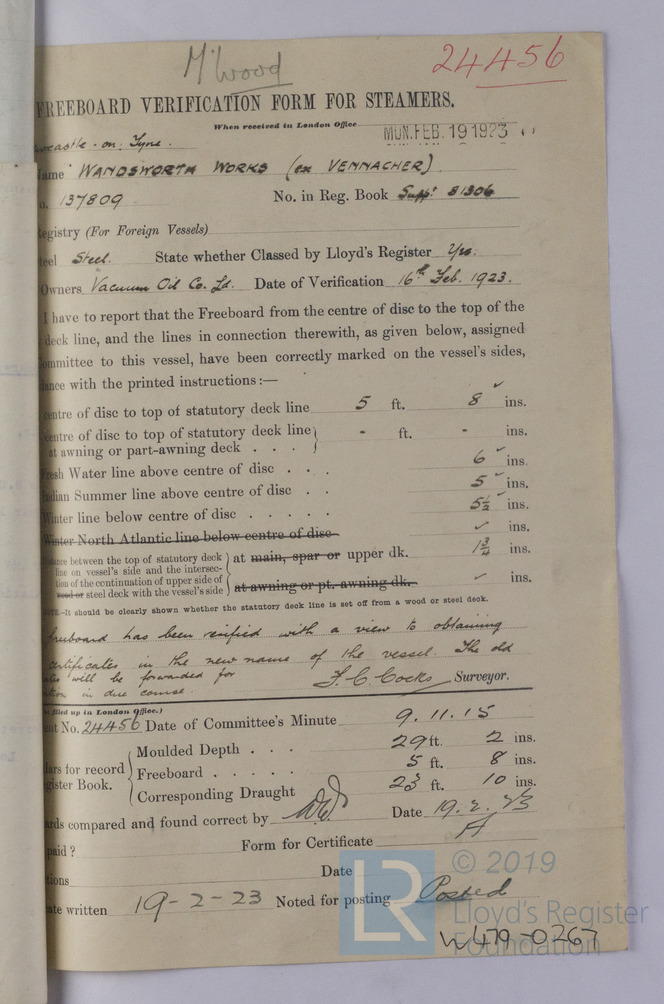 M'Wood
24456
FREEBOARD VERIFICATION FORM FOR STEAMERS.
When received in London Office
MON. FEB. 19 1923
wcastle-on-Tyne.
ame WANDSWORTH WORKS (ex VENNACHER)
o. 137809 No. in Reg. Book Suppt 81306
egistry (For Foreign Vessels)
eel Steel. State whether Classed by Lloyd's Register Yes.
Owners Vacuum Oil Co. Ld. Date of Verification 16th Feb. 1923.
I have to report that the Freeboard from the centre of disc to the top of the
deck line, and the lines in connection therewith, as given below, assigned
ommittee to this vessel, have been correctly marked on the vessel's sides,
ance with the printed instructions:—
centre of disc to top of statutory deck line 5 ft. 8 ins.
centre of disc to top of statutory deck line
at awning or part-awning deck . . . - ft. - ins.
resh Water line above centre of disc . . . 6 ins.
ndian Summer line above centre of disc . . 5 ins.
Winter line below centre of disc . . . . . 5½ ins.
Winter North Atlantic line below centre of disc ✓ ins.
tance between the top of statutory deck
line on vessel's side and the intersec- at main, spar or upper dk. 1¾ ins.
tion of the continuation of upper side of
wood or steel deck with the vessel's side at awning or pt. awning dk. ✓ ins.
NOTE.—It should be clearly shown whether the statutory deck line is set off from a wood or steel deck.
freeboard has been verified with a view to obtaining
certificates in the new name of the vessel. The old
ates will be forwarded for
tion in due course. F. C. Cocks Surveyor.
filled up in London Office.)
ent No. 24456 Date of Committee's Minute 9.11.15
Moulded Depth . . . 29 ft. 2 ins.
lars for record Freeboard . . . . . 5 ft. 8 ins.
gister Book. Corresponding Draught 23 ft. 10 ins.
ards compared and found correct by Date 19.2.23
paid? Form for Certificate A
tions Date
ate written 19-2-23 Noted for posting Posted
LR © 2019
Lloyd's Register
Foundation
W479-0267